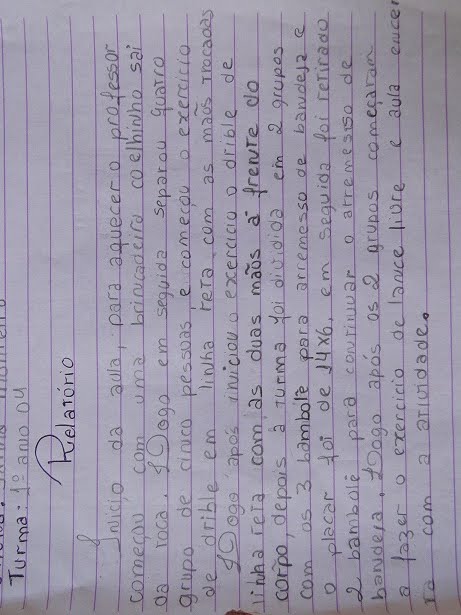 Turma: 1º ano 04
Relatório
Início da aula, para aquecer o professor
começou com uma brincadeira coelhinho sai
da toca. Logo em seguida separou quatro
grupo de cinco pessoas, e começou o exercício
de drible em linha reta com as mãos trocadas
Logo após iniciou o exercício o drible de
linha reta com as duas mãos à frente do
corpo, depois a turma foi dividida em 2 grupos
com os 3 bambolê para arremesso de bandeja e
o placar foi de 14x6, em seguida foi retirado
2 bambolê para continuar o arremesso de
bandeja. Logo após os 2 grupos começaram
a fazer o exercício de lance livre e aula encer
ra com a atividade.